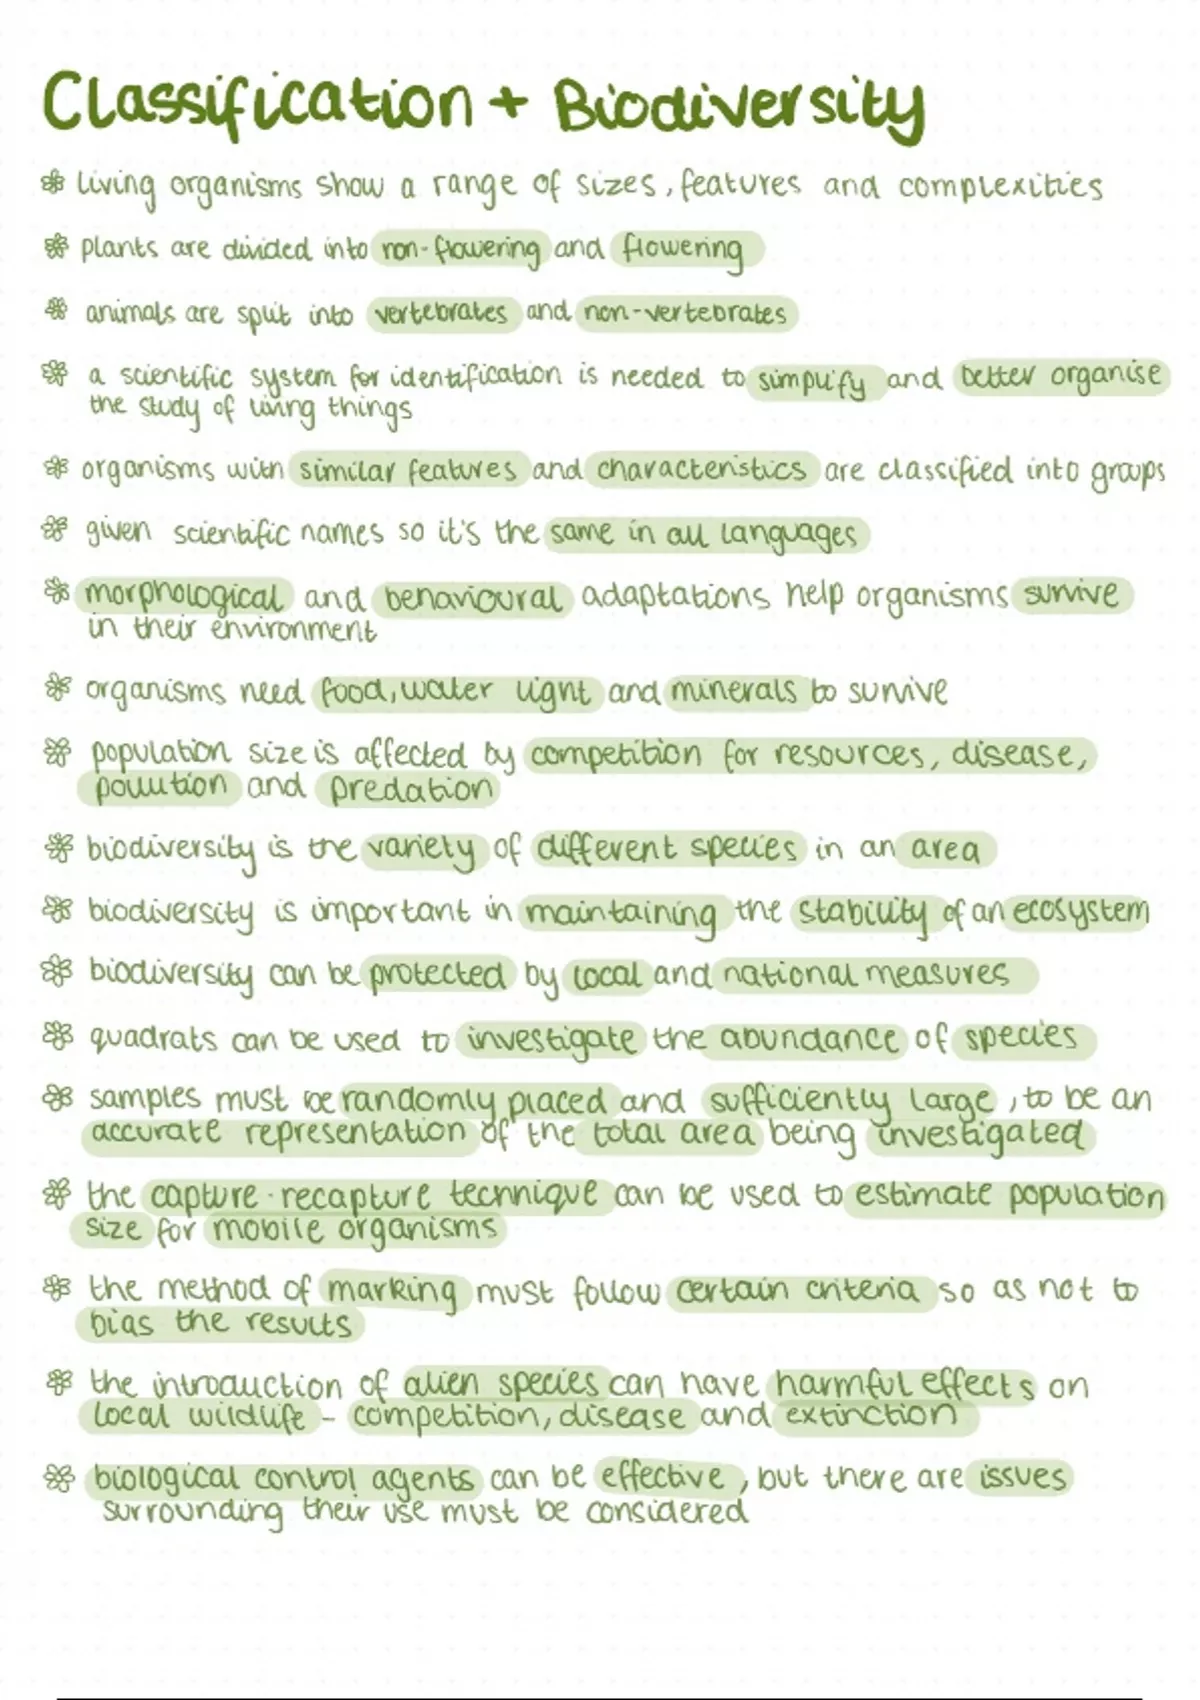 Classification + Biodiversity
living organisms show a range of sizes, features and complexities
plants are divided into non-flowering and flowering
animals are split into vertebrates and non-vertebrates
a scientific system for identification is needed to simplify and better organise
the study of living things
organisms with similar features and characteristics are classified into groups
given scientific names so it's the same in all languages
morphological and behavioural adaptations help organisms survive
in their environment
organisms need food, water light and minerals to survive
population size is affected by competition for resources, disease,
pollution and predation
biodiversity is the variety of different species in an area
biodiversity is important in maintaining the stability of an ecosystem
biodiversity can be protected by local and national measures
quadrats can be used to investigate the abundance of species
samples must be randomly placed and sufficiently large, to be an
accurate representation of the total area being investigated
the capture-recapture technique can be used to estimate population
size for mobile organisms
the method of marking must follow certain criteria so as not to
bias the results
the introduction of alien species can have harmful effects on
local wildlife - competition, disease and extinction
biological control agents can be effective, but there are issues
surrounding their use must be considered